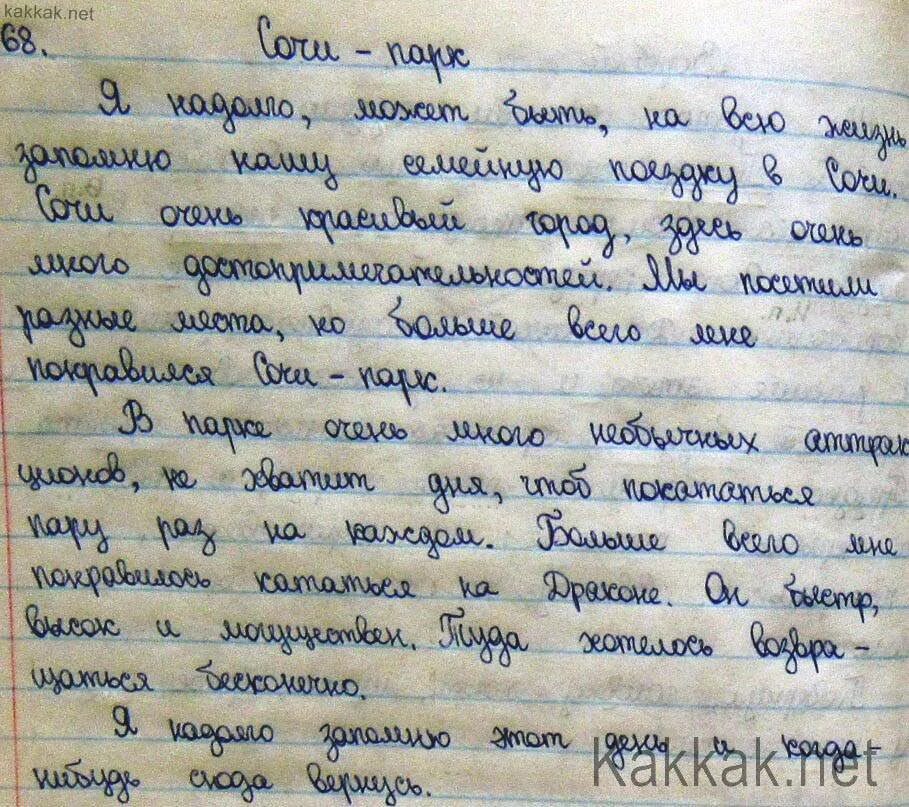 kakkak.net
68. Сочи - парк
Я надолго, может быть, на всю жизнь
запомню нашу семейную поездку в Сочи.
Сочи очень красивый город, здесь очень
много достопримечательностей. Мы посетили
разные места, но больше всего мне
понравился Сочи - парк.
В парке очень много необычных аттрак
ционов, не хватит дня, чтоб покататься
пару раз на каждом. Больше всего мне
понравилось кататься на Драконе. Он быстр,
высок и могуществен. Туда хотелось возвра -
щаться бесконечно.
Я надолго запомню этот день и когда-
нибудь сюда вернусь.
Kakkak.net